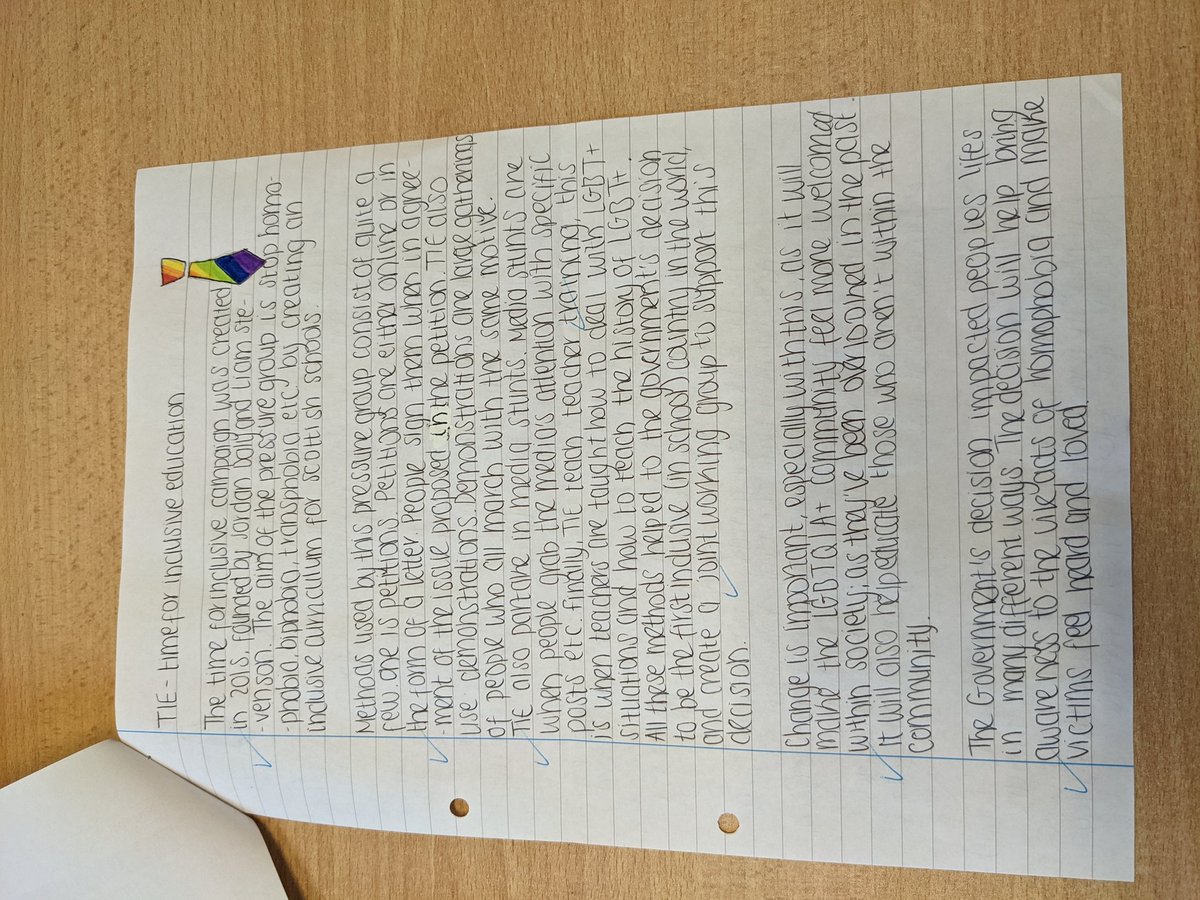 TIE - time for inclusive education
The time for inclusive campaign was created
in 2015, founded by Jordan Daly and Liam Ste-
-venson. The aim of the pressure group is stop homo-
-phobia, biphobia, transphobia etc by creating an
inclusive curriculum for scottish schools.
Methods used by this pressure group consist of quite a
few one is petitions. Petitions are either online or in
the form of a letter people sign them when in agree-
-ment of the issue proposed in the petition. TIE also
use demonstrations. Demonstrations are large gatherings
of people who all march with the same motive.
TIE also partake in media stunts. Media stunts are
when people grab the media's attention with specific
posts etc. Finally, TIE teach teacher training, this
is when teachers are taught how to deal with LGBT+
situations and how to teach the history of LGBT+.
All these methods helped to the government's decision
to be the first inclusive in school country in the world,
and create a joint working group to support this
decision.
Change is important, especially with this, as it will
make the LGBTQIA+ community feel more welcomed
within society; as they've been over looked in the past.
It will also help educate those who aren't within the
community.
The Government's decision impacted peoples lifes
in many different ways. The decision will help bring
awareness to the victims of homophobia and make
victims feel heard and loved.